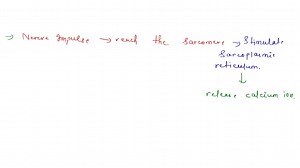 → Nerve Impulse → reach the sarcomere → Stimulate
Sarcoplasmic
reticulum.
↓
release calcium ion.